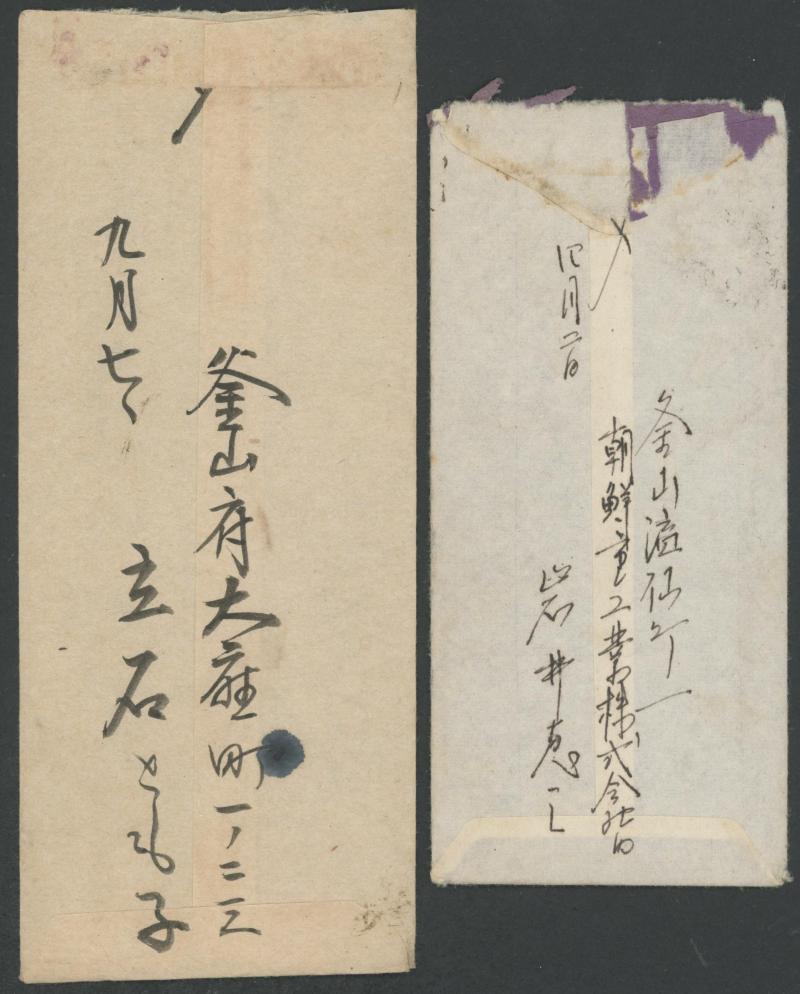 釜山府大廰町一ノ二三
立石とも子
九月七日
釜山瀛仙町一
朝鮮重工業株式会社内
岩井恵
四月二日